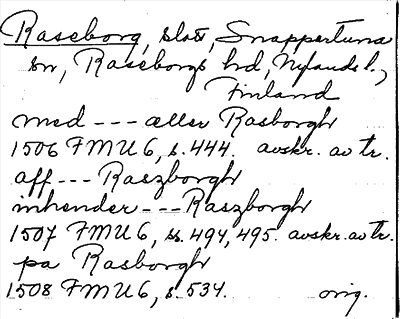 Raseborg, slott, Snappertuna
sn, Raseborgs hd, Nylands l.,
Finland
med --- æller Rasborgh
1506 FMU 6, s. 444. avskr. av tr.
aff --- Raszborgh
inhender --- Raszborgh
1507 FMU 6, ss. 494, 495. avskr. av tr.
pa Rasborgh
1508 FMU 6, s. 534. orig.